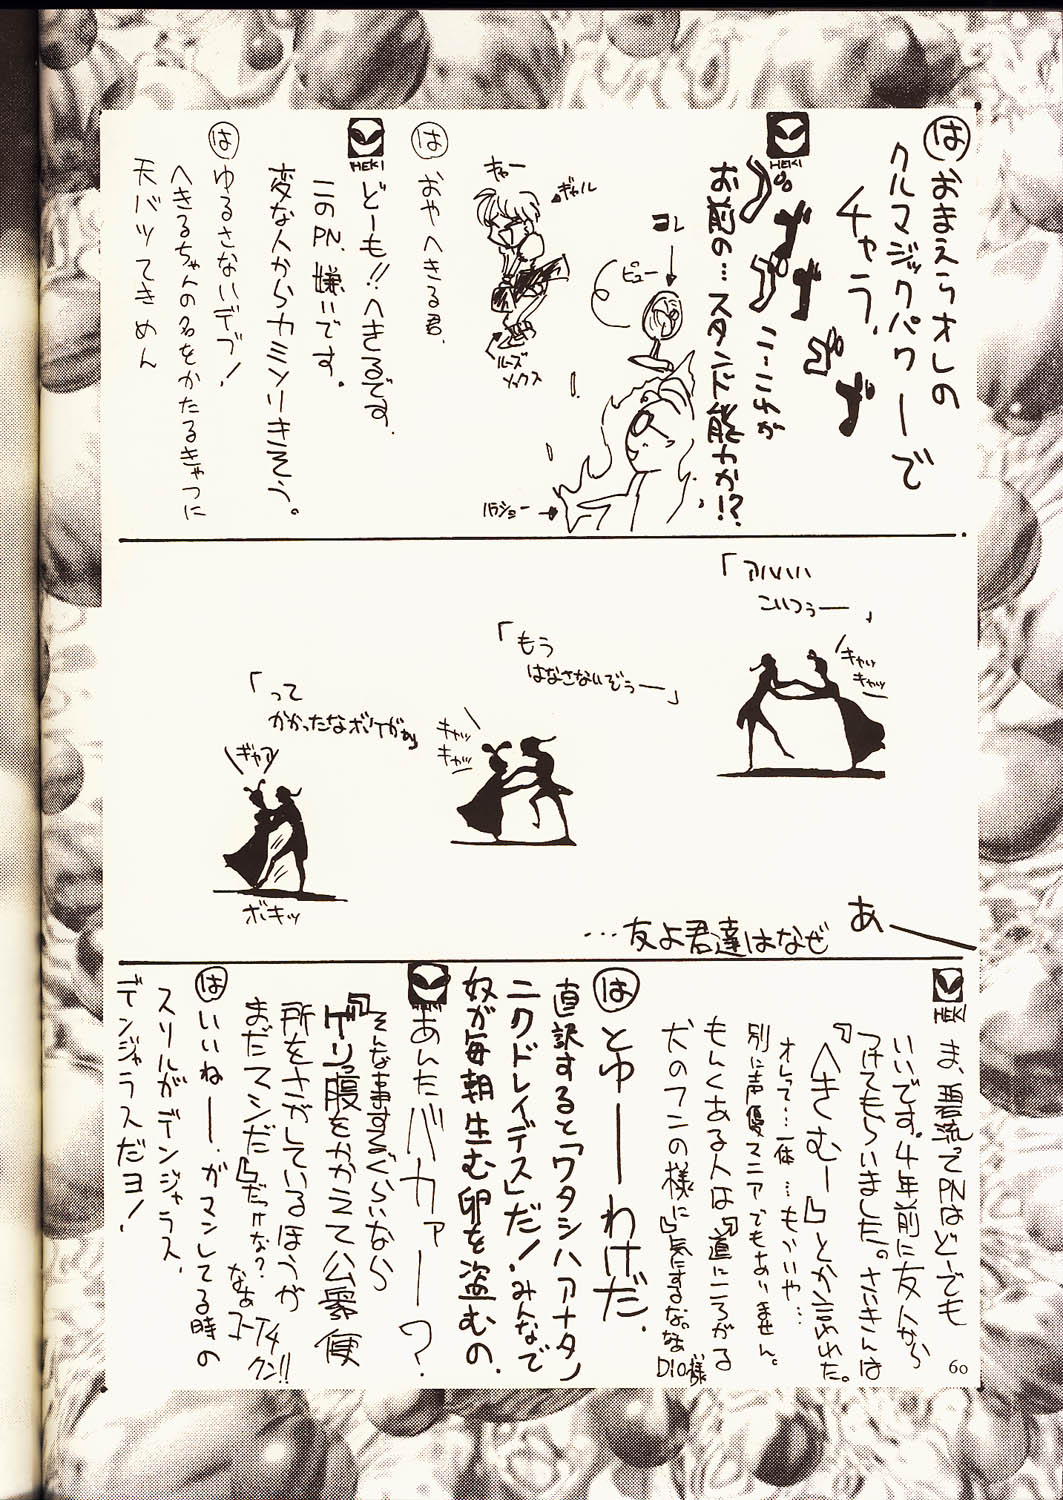 は おまえらオレの
クルマジックパワーで
チャラ、
HEKI
こ…これが
お前の…スタンド能力か!?
コレ
ビュー
キャー
ギャル
ルーズ
ソックス
は おやへきる君、
HEKI どーも!!へきるです。
このPN、嫌いです。
変な人からカミソリきそう。
は ゆるさないデブ!
へきるちゃんの名をかたるきゃつに
天バツてきめん
「アハハハ
こいつぅー」
キャッ
キャッ
「もう
はなさないぞぅー」
キャッ
キャッ
「って
かかったなボケがぁ」
ギャア
ボキッ
あー
…友よ君達はなぜ
HEKI ま、碧流ってPNはどーでも
いいです。4年前に友人から
つけてもらいました。さいきんは
『へきむー』とか言われた。
オレって…一体…もういいや…
別に声優マニアでもありません。
もんくある人は『道にころがる
犬のフンの様に』気にするな。なぁ
DIO様
は とゆーーわけだ、
直訳すると「ワタシハアナタノ
ニクドレイデス」だ!みんなで
奴が毎朝生む卵を盗むの、
HEKI あんたバカァー?
『そんな事するぐらいなら
ゲリ腹をかかえて公衆便
所をさがしているほうが
まだマシだ』だっけな?
なぁ
コーイチ
クン!!
は いいねー、ガマンしてる時の
スリルがデンジャラス、
デンジャラスだヨ!
60